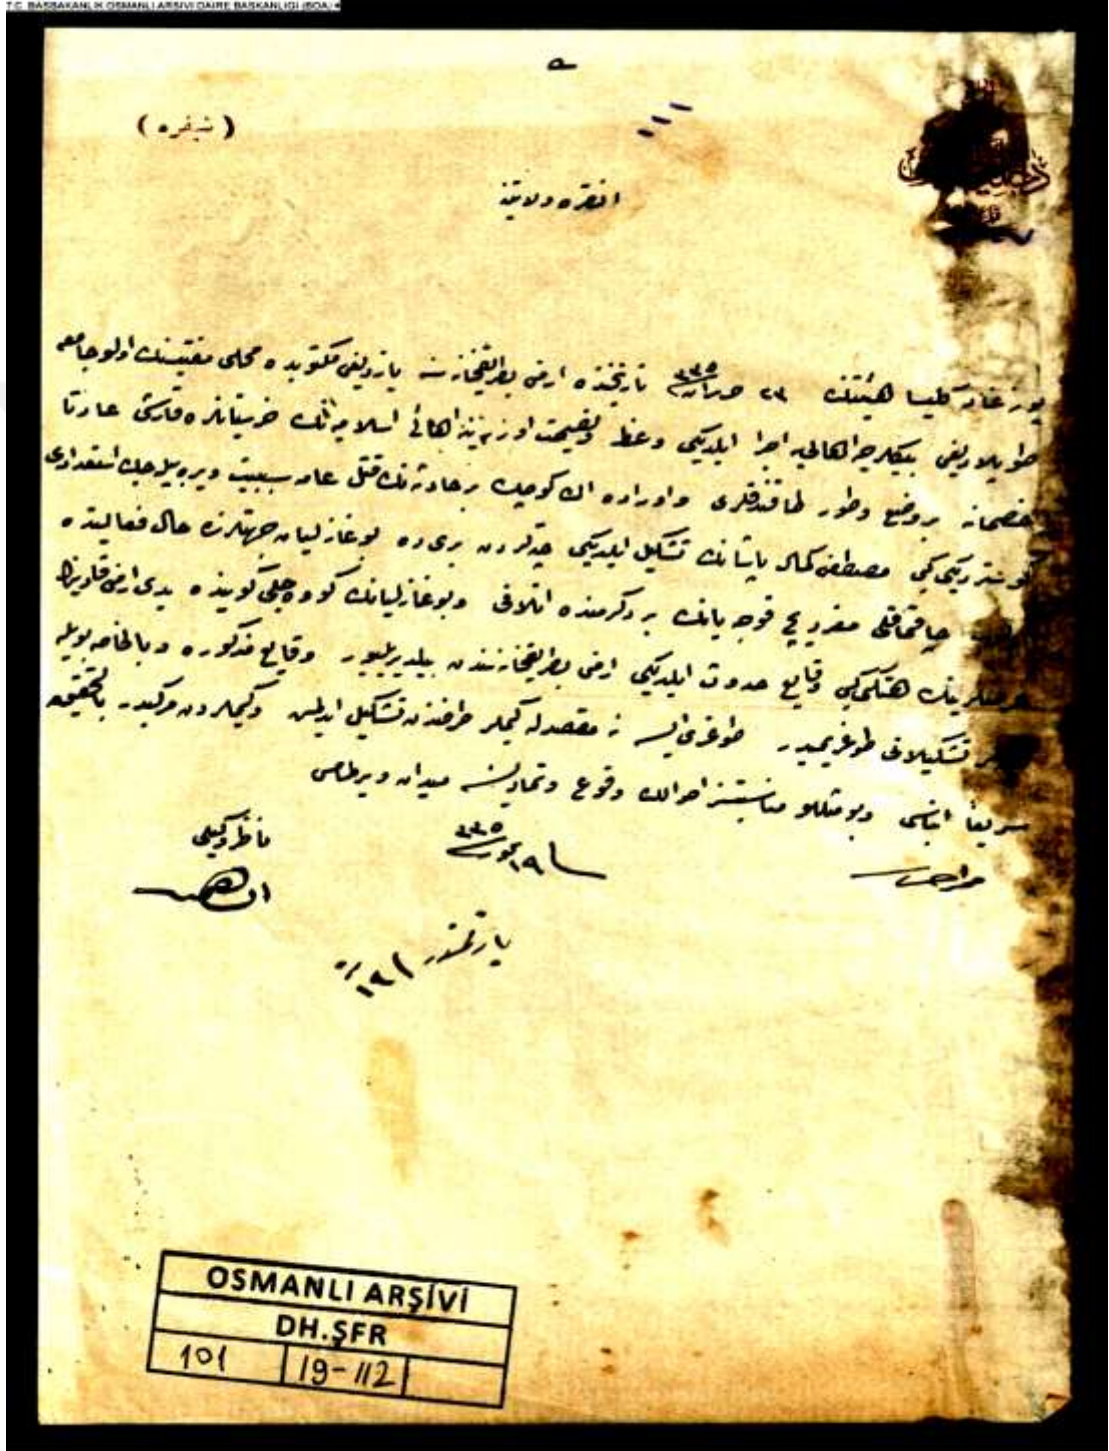 T.C. BAŞBAKANLIK OSMANLI ARŞİVİ DAİRE BAŞKANLIĞI (BOA)
١١١
( شیفره )
انقره ولایتنه
یوزغاد کلیسا هیئتنك ٢٣ حزیران ٣٣٥ تاریخنده ارمنی بطریقخانه سنه یازدیغی مکتوبده محلی مفتیسنك اولو جامعه
طوپلادیغی بیکلرجه اهالی یه اجرا ایلدیکی وعظ ونصیحت اوزرینه اهالئ اسلامیه نك خرستیانلره قارشی عادتا
خصمانه بر وضع وطور طاقندقلری واوراده اك کوچك بر حادثه نك قتل عامه سببیت ویره بیله جك استعدادی
کوستردیکی کبی مصطفی کمال پاشانك تشکیل ایلدیکی چته لردن بری ده بوغازلیان جهتلرنده حال فعالیتده
چاقماقلی قوجه بانك بر دکرمنده اتلافی وبوغازلیانك کوینده یدی ارمنی
هتکی کبی وقایع حدوث ایلدیکی ارمنی بطریقخانه سندن بیلدیریلیور وقایع مذکوره وبالخاصه بویله
بر تشکیلاتی طوغریمیدر طوغری ایسه نه مقصدله کیملر طرفندن تشکیل ایدلمش وکیملردن مرکبدر بالتحقیق
سریعا انباسی وبو مثللو مناسبتسز احوالك وقوع وتمادیسنه میدان ویرلمامسی
فی ١٩ تموز ٣٣٥
ناظر وکیلی
یازلمشدر
OSMANLI ARŞİVİ
DH.ŞFR
101 19-112